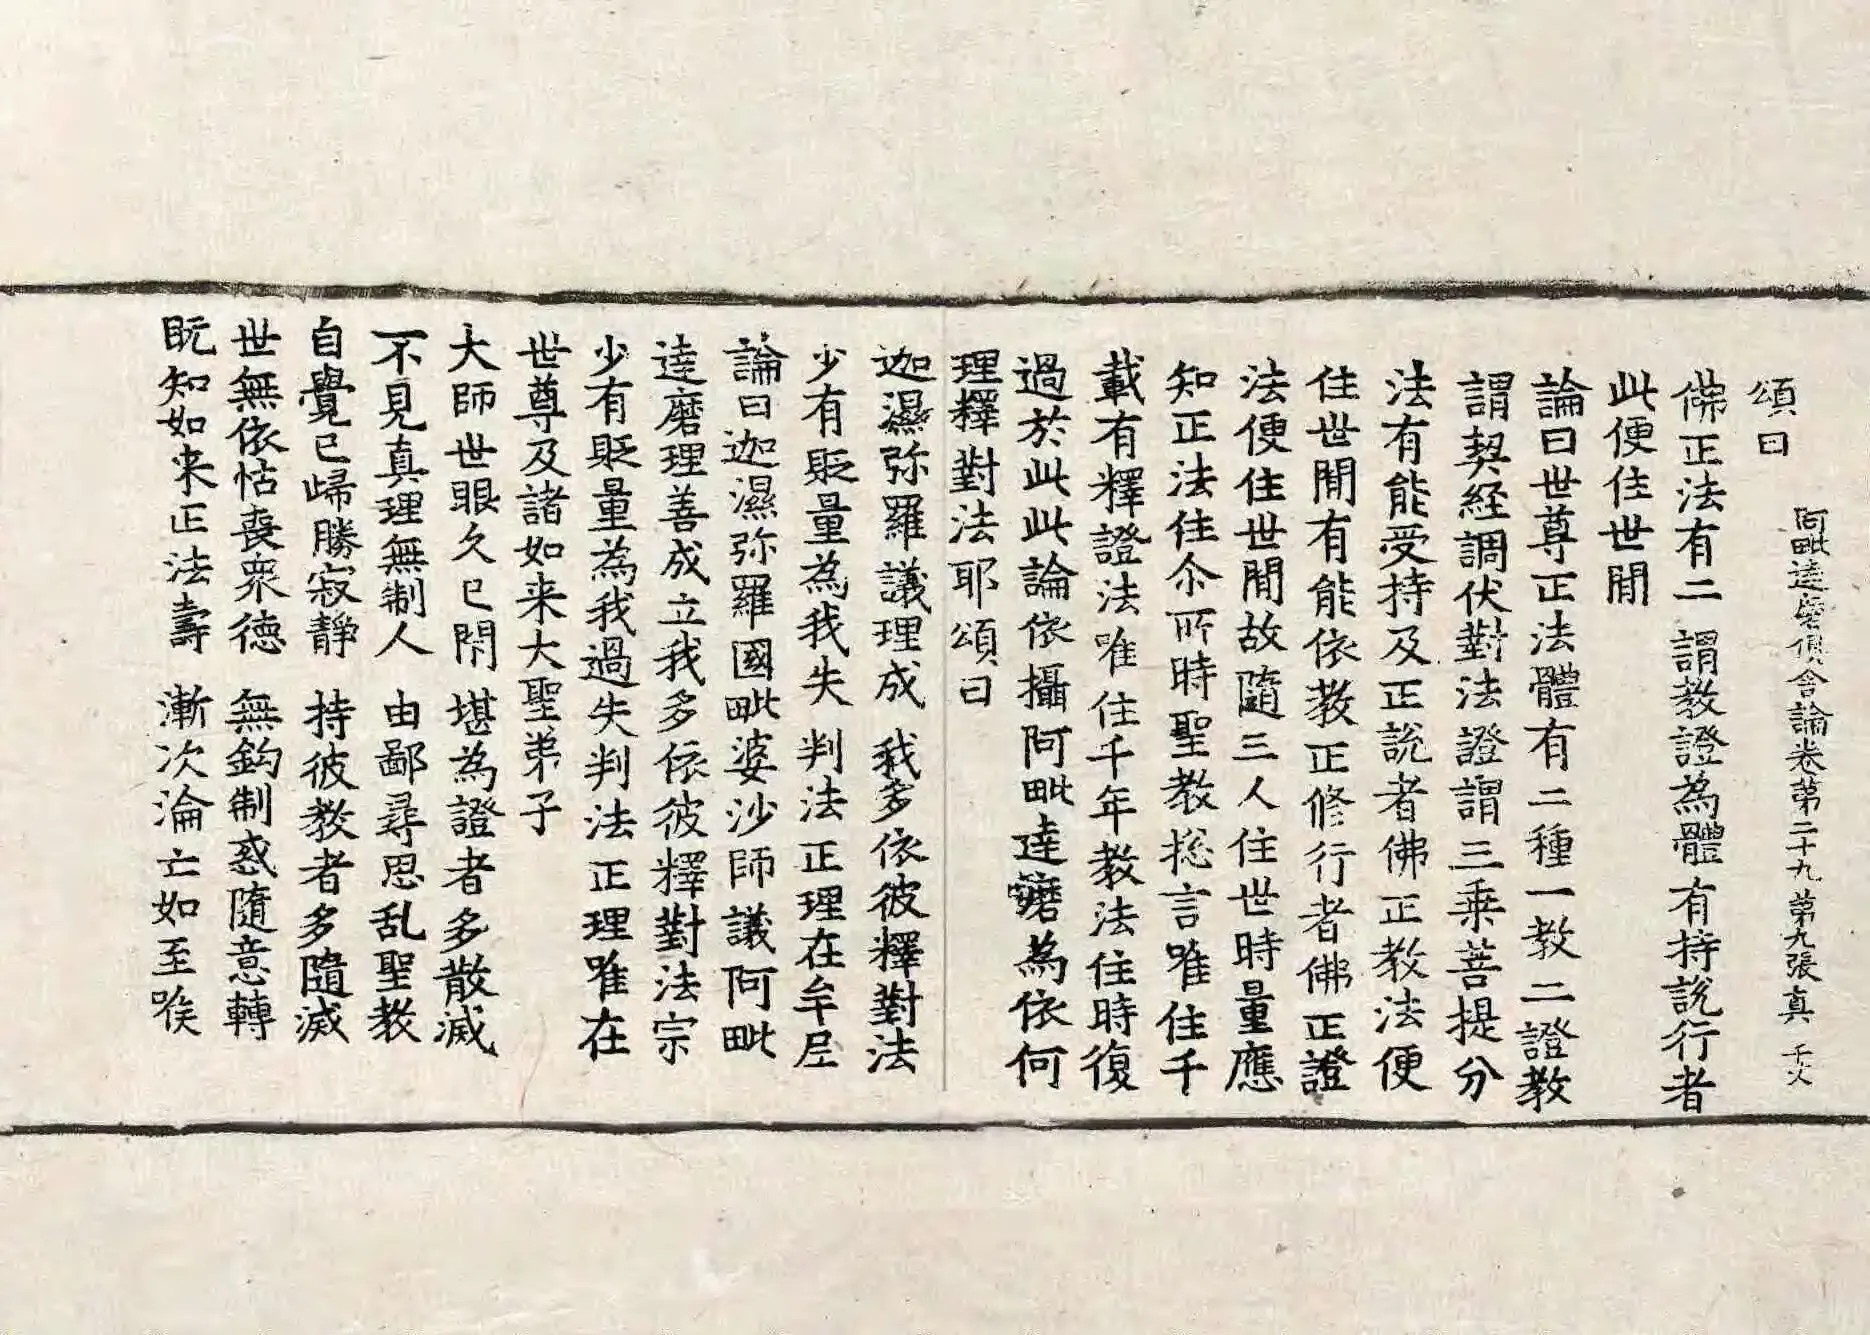 頌曰
阿毗達磨俱舍論卷第二十九 第九張真
佛正法有二 謂教證為體 有持說行者
此便住世間
論曰世尊正法體有二種一教二證教
謂契経調伏對法證謂三乘菩提分
法有能受持及正說者佛正教法便
住世間有能依教正修行者佛正證
法便住世間故隨三人住世時量應
知正法住尒所時聖教捴言唯住千
載有釋證法唯住千年教法住時復
過於此此論依攝阿毗達磨為依何
理釋對法耶頌曰
迦濕弥羅議理成 我多依彼釋對法
少有貶量為我失 判法正理在牟尼
論曰迦濕弥羅國毗婆沙師議阿毗
達磨理善成立我多依彼釋對法宗
少有貶量為我過失判法正理唯在
世尊及諸如来大聖弟子
大師世眼久已閇 堪為證者多散滅
不見真理無制人 由鄙尋思乱聖教
自覺已歸勝寂静 持彼教者多隨滅
世無依怙喪衆徳 無鈎制惑隨意轉
既知如来正法壽 漸次淪亡如至喉